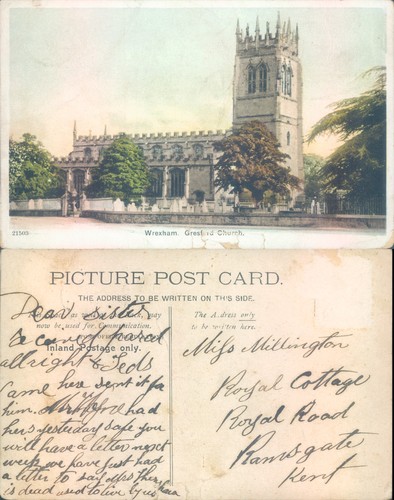 21509
Wrexham. Gresford Church.
PICTURE POST CARD.
THE ADDRESS TO BE WRITTEN ON THIS SIDE.
as may
now be used for Communication.
Inland Postage only.
The Address only
to be written here.
Dear Sister
received parcel
allright & Teds
Came here sent it for
him. had
hers yesterday safe you
will have a letter next
week we have just had
a letter to say Mrs
is dead used to live by us
Miss Millington
Royal Cottage
Royal Road
Ramsgate
Kent